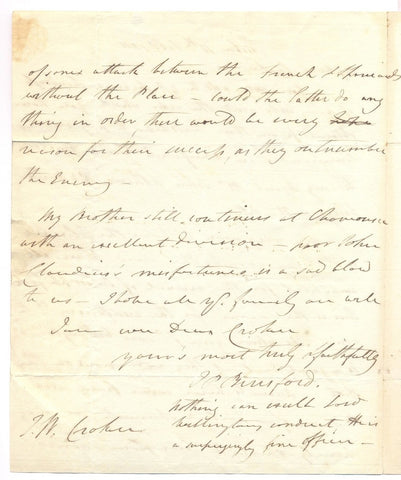 of some attack between the French & Spaniards
without the Place – could the latter do any
thing in order, there would be every
reason for their success, as they outnumber
the Enemy –
My Brother still continues at
with an excellent division – poor John
misfortunes is a sad blow
to us – I hope all yr. family are well
I am ever Dear Croker
yours most truly & faithfully
J P Beresford.
Nothing can excell Lord
Wellingtons conduct. He is
a surprizingly fine officer –
J. W. Croker